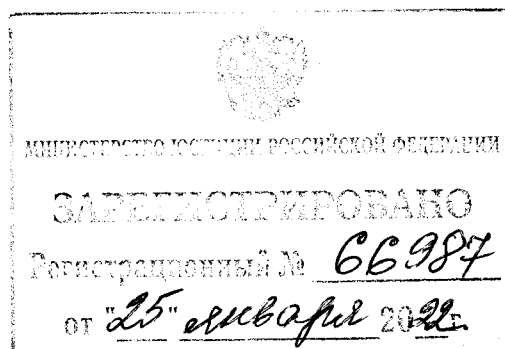 МИНИСТЕРСТВО ЮСТИЦИИ РОССИЙСКОЙ ФЕДЕРАЦИИ
ЗАРЕГИСТРИРОВАНО
Регистрационный № 66987
от "25" января 2022 г.